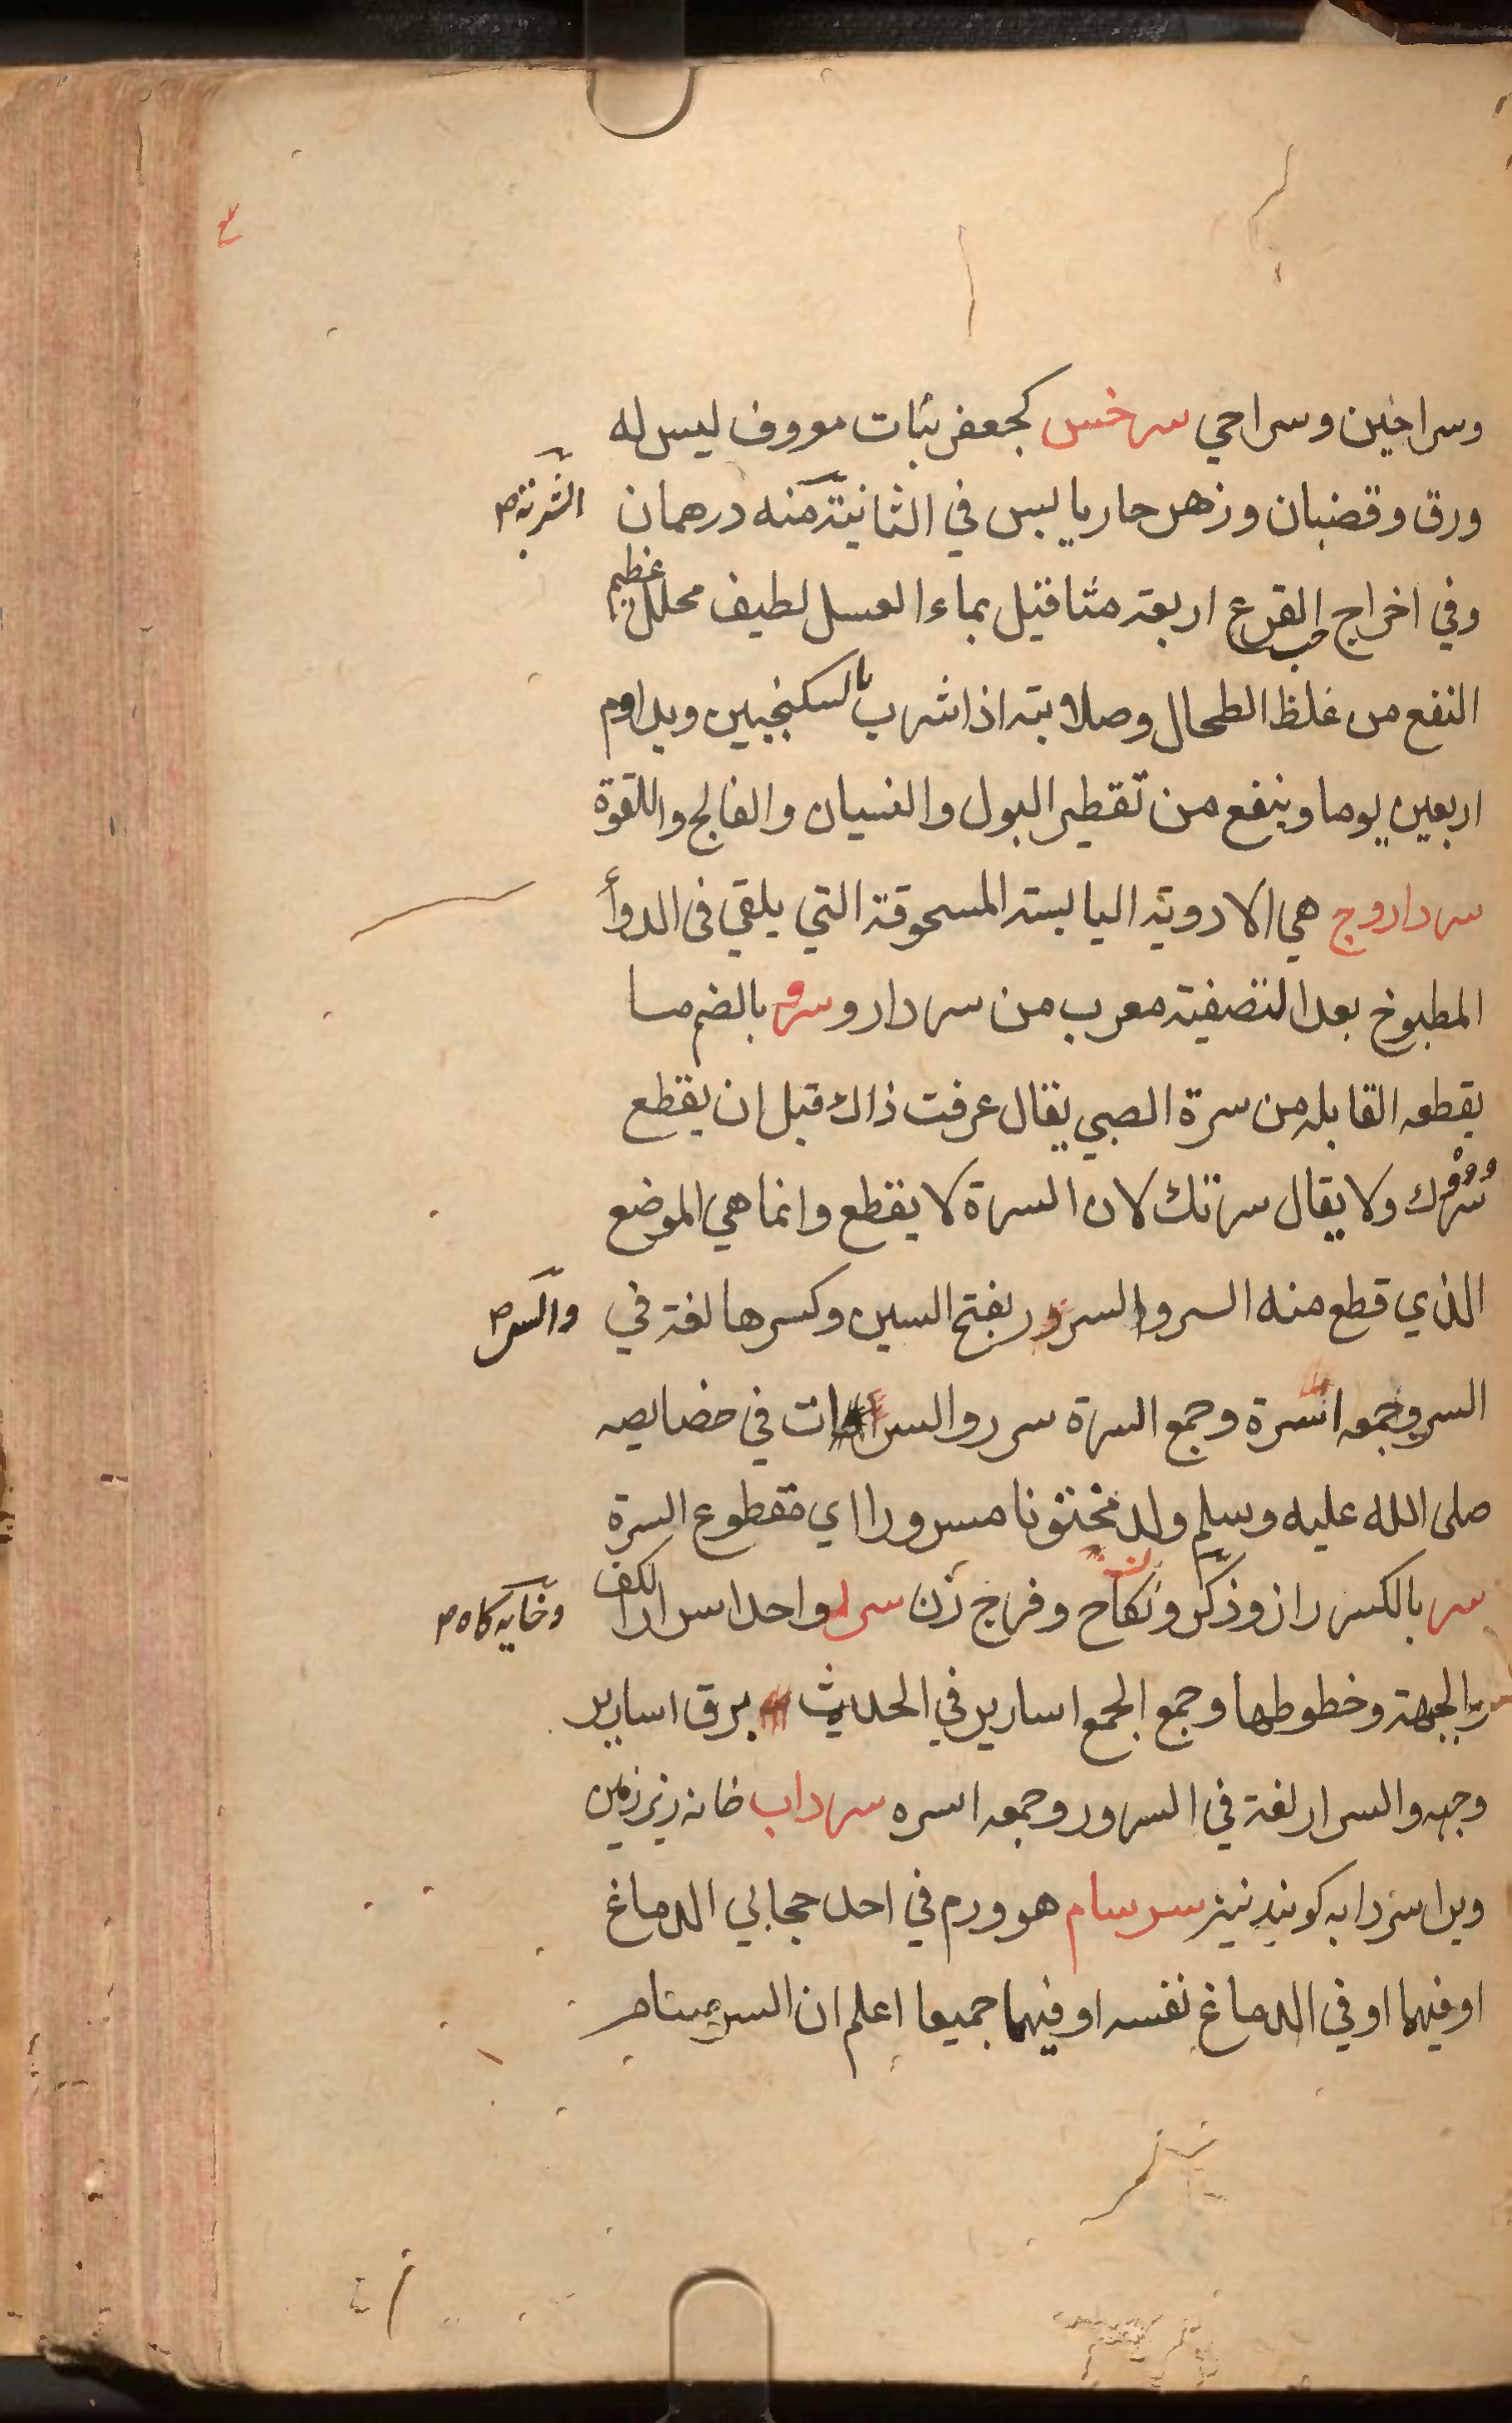 وسراحين وسراحي سرخس كجعفر نبات معروف ليس له
ورق وقضبان وزهر حار يابس في الثانية منه درهمان
الشربة
وفي اخراج حب القرع اربعة مثاقيل بماء العسل لطيف محلل عظيم
النفع من غلظ الطحال وصلابته اذا شرب بالسكنجبين ويداوم
اربعين يوما وينفع من تقطير البول والنسيان والفالج واللقوة
سرداروج هي الادوية اليابسة المسحوقة التي يلقي فى الدوأ
المطبوخ بعد التصفية معرب من سردارو سر بالضم ما
يقطعه القابله من سرة الصبي يقال عرفت ذاك قبل ان يقطع
سُرُّك ولا يقال سرتك لان السرة لا يقطع وانما هي الموضع
الذي قطع منه السر والسرر بفتح السين وكسرها لغة في
والسر
السر وجمعه اسرة وجمع السرة سرر والسرات في خصايصه
صلى الله عليه وسلم ولد مختونا مسرورا اي مقطوع السرة
سر بالكسر راز وذكر ونكاح وفرج زن سرر واحد اسرار الكف
وخايه كاه
والجبهة وخطوطها وجمع الجمع اسارير في الحديث برق اسارير
وجهه والسرار لغة في السرور وجمعه اسره سرداب خانه زيرزمين
ويرا سردابه كويند نيز سرسام هو ورم في احد حجابي الدماغ
او فيهما او في الدماغ نفسه او فيهما جميعا اعلم ان السرسام